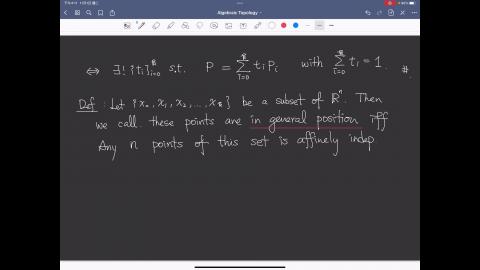 Algebraic Topology
⇔ ∃! {tᵢ}ᵏᵢ₌₀ s.t. P = ∑ᵏᵢ₌₀ tᵢ Pᵢ with ∑ᵏᵢ₌₀ tᵢ = 1. #
Def : Let {x₀, x₁, x₂, ..., xₖ} be a subset of ℝⁿ. Then
we call these points are in general position iff
Any n points of this set is affinely indep